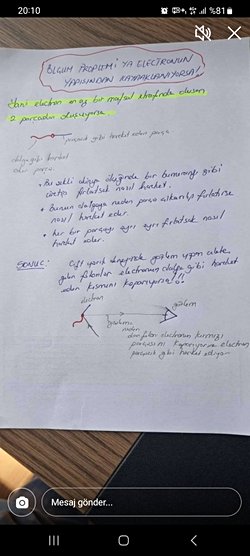 20:10
%81
ÖLÇÜM PROBLEMİ YA ELECTRONUN
YAPISINDAN KAYNAKLANIYORSA!!
Yani electron en az bir mafsal etrafında dönen
2 parçadan oluşuyorsa.
parçacık gibi hareket eden parça
dalga gibi hareket
eden parça.
• Bu şekli alıp düğünde bir bumerang gibi
fırlatırsak nasıl hareket.
• Bunun dalgaya neden parça fırlatılırsa
nasıl hareket eder
• her bir parçayı ayrı ayrı fırlatırsak nasıl
hareket eder.
SONUÇ: Çift yarık deneyinde gözlem yapan
gelen fotonlar electronun dalga gibi hareket
eden kısmını koparıyorsa!!
electron
gözlem
gözlem
neden
fotonlar electronun kırmızı
parçasını koparıyorsa electron
parçacık gibi hareket ediyor.
Mesaj gönder...